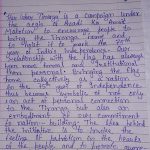 Har Ghar Tiranga is a campaign under
the aegis of Azadi Ka Amrit
Mahotsav to encourage people to
bring the Tiranga home and
to hoist it to mark the 75th
year of India's independence. Our
relationship with the flag has always
been more formal and institutional
than personal. Bringing the flag
home collectively as a nation in
the 75th year of Independence
thus becomes symbolic of not only
an act of personal connection
to the Tiranga but also an
embodiment of our commitment
to nation-building. The idea behind
the initiative is to invoke the
feeling of patriotism in the hearts
of the people and to promote